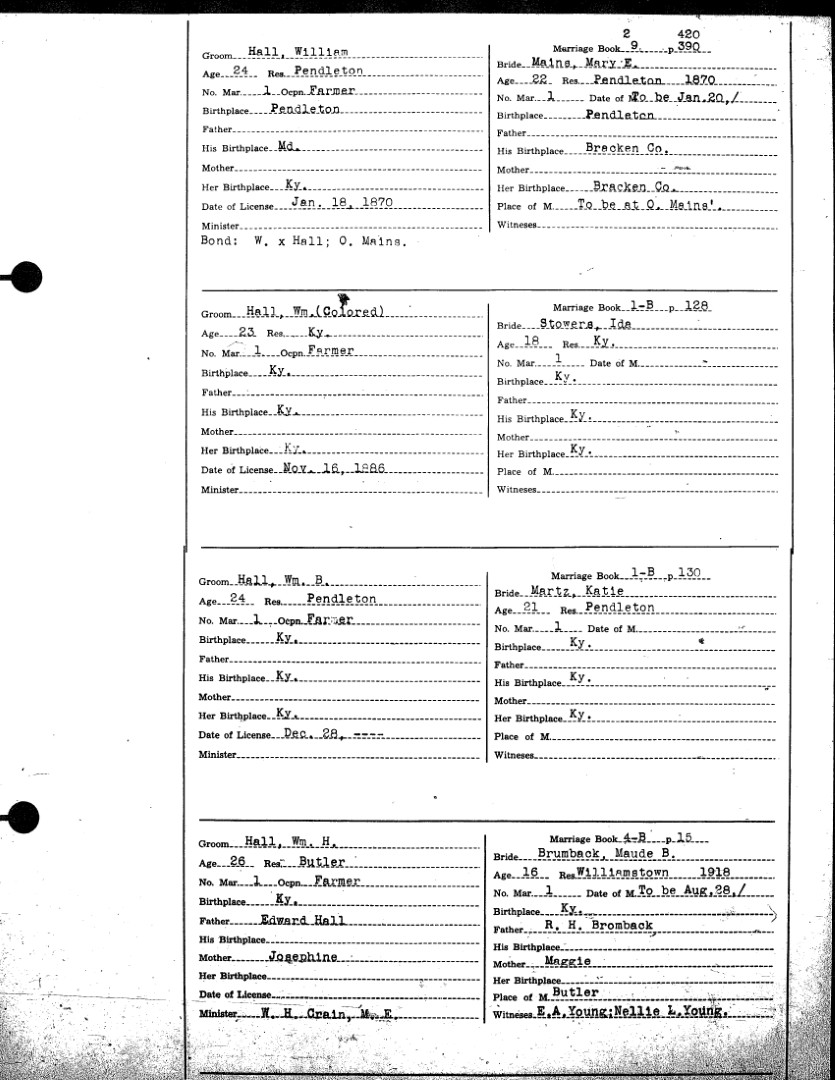 2 420
Groom Hall, William
Marriage Book 9. p. 390
Age 24 Res. Pendleton
Bride Mains, Mary E.
No. Mar. 1 Ocpn. Farmer
Age 22 Res. Pendleton 1870
Birthplace Pendleton
No. Mar. 1 Date of M. To be Jan. 20,/
Father
Birthplace Pendleton
His Birthplace Md.
Father
Mother
His Birthplace Bracken Co.
Her Birthplace Ky.
Mother
Date of License Jan. 18, 1870
Her Birthplace Bracken Co.
Minister
Place of M. To be at O. Mains'.
Bond: W. x Hall; O. Mains.
Witnesses
Groom Hall, Wm. (Colored)
Marriage Book 1-B p. 128
Age 23 Res. Ky.
Bride Stowers, Ida
No. Mar. 1 Ocpn. Farmer
Age 18 Res. Ky.
Birthplace Ky.
No. Mar. 1 Date of M.
Father
Birthplace Ky.
His Birthplace Ky.
Father
Mother
His Birthplace Ky.
Her Birthplace Ky.
Mother
Date of License Nov. 16, 1886
Her Birthplace Ky.
Minister
Place of M.
Witnesses
Groom Hall, Wm. B.
Marriage Book 1-B p. 130
Age 24 Res. Pendleton
Bride Martz, Katie
No. Mar. 1 Ocpn. Farmer
Age 21 Res. Pendleton
Birthplace Ky.
No. Mar. 1 Date of M.
Father
Birthplace Ky.
His Birthplace Ky.
Father
Mother
His Birthplace Ky.
Her Birthplace Ky.
Mother
Date of License Dec. 28, ----
Her Birthplace Ky.
Minister
Place of M.
Witnesses
Groom Hall, Wm. H.
Marriage Book 4-B p. 15
Age 26 Res. Butler
Bride Brumback, Maude B.
No. Mar. 1 Ocpn. Farmer
Age 16 Res Williamstown 1918
Birthplace Ky.
No. Mar. 1 Date of M. To be Aug. 28,/
Father Edward Hall
Birthplace Ky.
His Birthplace
Father R. H. Bromback
Mother Josephine
His Birthplace
Her Birthplace
Mother Maggie
Date of License
Her Birthplace
Minister W. H. Crain, M. E.
Place of M. Butler
Witnesses E.A.Young; Nellie L.Young.